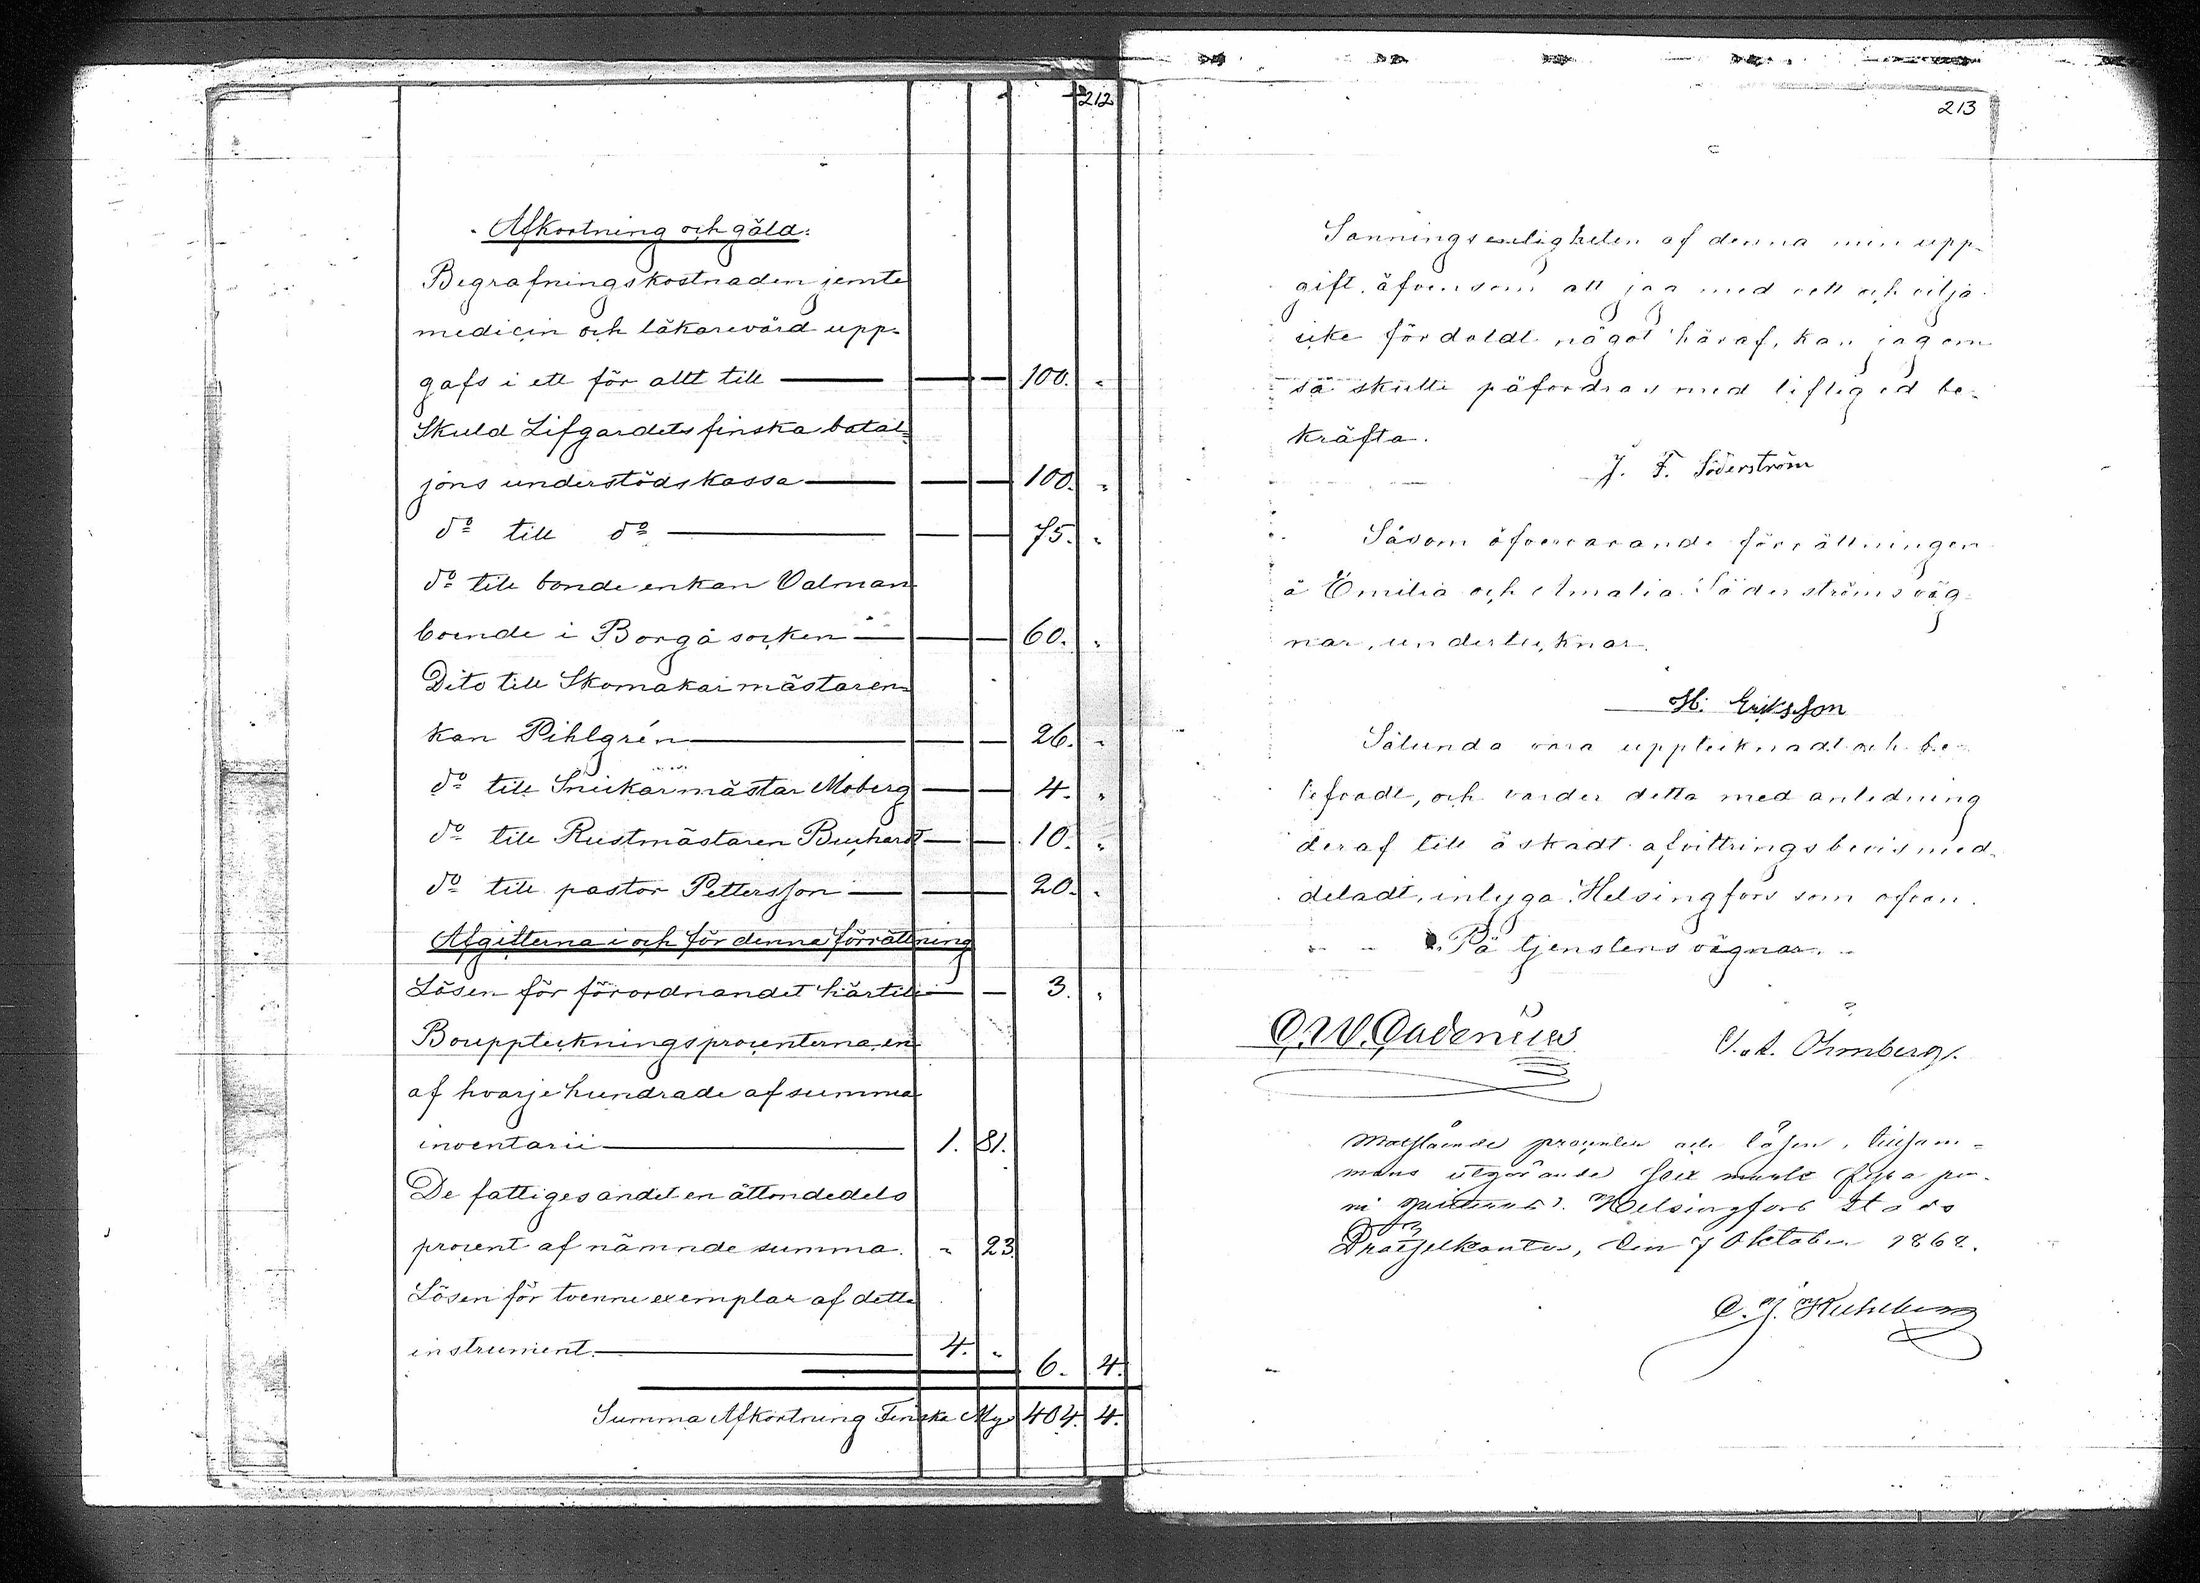 212
Afkortning och gäld:
Begrafningskostnaden jemte
medicin och läkarevård upp-
gafs i ett för allt till — — — 100. "
Skuld Lifgardets finska batal-
jons understödskassa — — — 100. "
do till do — — — 75. "
do till bondeenkan Valman
boende i Borgå socken — — — 60. "
Dito till Skomakarmästaren-
kan Pihlgrén — — — 26. "
do till Snickarmästar Moberg — — 4. "
do till Rustmästaren Buchardt — — 10. "
do till pastor Pettersson — — 20. "
Afgifterna i och för denna förrättning
Lösen för förordnandet härtill — — 3. "
Bouppteckningsprocenterna en
af hvarje hundrade af summa
inventarii — 1. 81.
De fattiges andel en åttondedels
procent af nämnde summa. " 23.
Lösen för tvenne exemplar af detta
instrument. — 4. " 6. 4.
Summa Afkortning Finska Mg 404. 4.
213
Sanningsenligheten af denna min upp-
gift, äfvensom att jag med vett och vilja
icke fördoldt något häraf, kan jag om
så skulle påfordras med liflig ed be-
kräfta.
J. F. Söderström
Såsom öfvervarande förrättningen
å Emilia och Amalia Söderströms väg-
nar, undertecknar.
H. Eriksson
Sålunda vara upptecknadt och be-
lefvadt, och varder detta med anledning
deraf till äskadt afvittringsbevis med-
deladt, intyga. Helsingfors som ofvan.
På tjenstens vägnar.
C. W. Gadenius V. A. Öhmberg.
Motstående procenter och lösen, tillsam-
mans utgörande sex mark fyra pen-
ni Helsingfors Stads
Drätselkontor, den 7 Oktober 1868.
C. J.